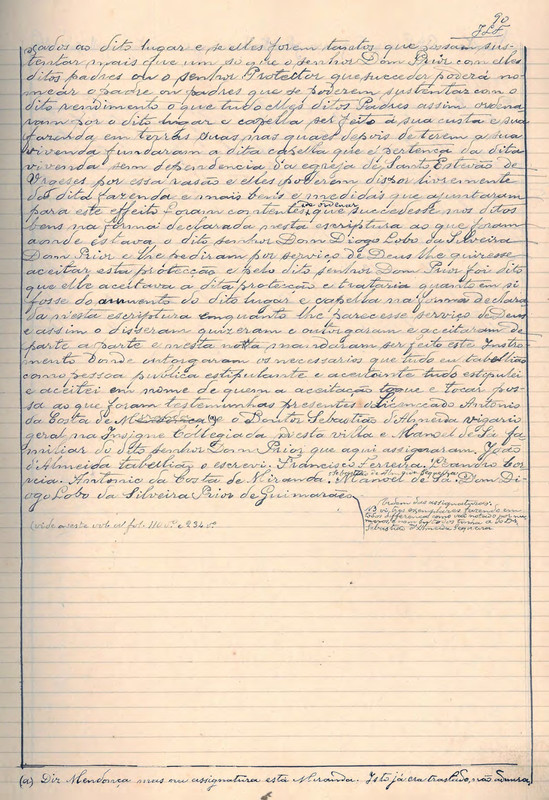 90
çados ao dito lugar e se elles forem tantos que possam sus-
tentar mais que um so o dito senhor Dom Prior com elles
ditos padres ou o senhor Protector que succeder poderá no-
mear o padre ou padres que se poderem sustentar com o
dito rendimento o que tudo elles ditos Padres assim ordena
ram por o dito lugar e capella ser feito á sua custa e sua
fazenda em terras suas nas quaes depois de terem a sua
vivenda fundaram a dita capella que é pertença da dita
vivenda sem dependencia da egreja de Santo Estevão de
Urgeses por essa rasão e elles poderem dispor livremente
da dita fazenda e mais bens e medidas que ajuntaram
para este effeito foram contentes que succedesse nos ditos
bens na forma declarada nesta escriptura ao que foram
aonde estava o dito senhor Dom Diogo Lobo da Silveira
Dom Prior e lhe pediram por serviço de Deus lhe quizesse
aceitar esta protecção e pelo dito senhor Dom Prior foi dito
que elle aceitava a dita protecção e trataria quanto em si
fosse do augmento do dito lugar e capella na forma declara
da nesta escriptura emquanto lhe parecesse serviço de Deus
e assim o disseram quizeram e outorgaram e aceitaram de
parte a parte e nesta nota mandaram ser feito este Instru-
mento donde outorgaram os necessarios que tudo eu tabellião
como pessoa publica estipulante e aceitante tudo estipulei
e aceitei em nome de quem a aceitação toque e tocar pos-
sa ao que foram testemunhas presentes o Licenceado Antonio
da Costa de Mendonça (a) e o Doutor Sebastião d'Almeida vigario
geral na Insigne Collegiada desta villa e Manoel de Sá fa-
miliar do dito senhor Dom Prior que aqui assignaram. João
d'Almeida tabellião o escrevi. Francisco Ferreira. Leandro Cor-
reia. Antonio da Costa de Miranda. Manoel de Sá. Dom Di-
ogo Lobo da Silveira Prior de Guimarães
(vide a este vol. al fol. 110 vº e 234 vº
Ordem das assignaturas:
Sebastião d'Almeida
(a) Diz Mendonça mas em assignatura está Miranda. Isto já era traslado, não